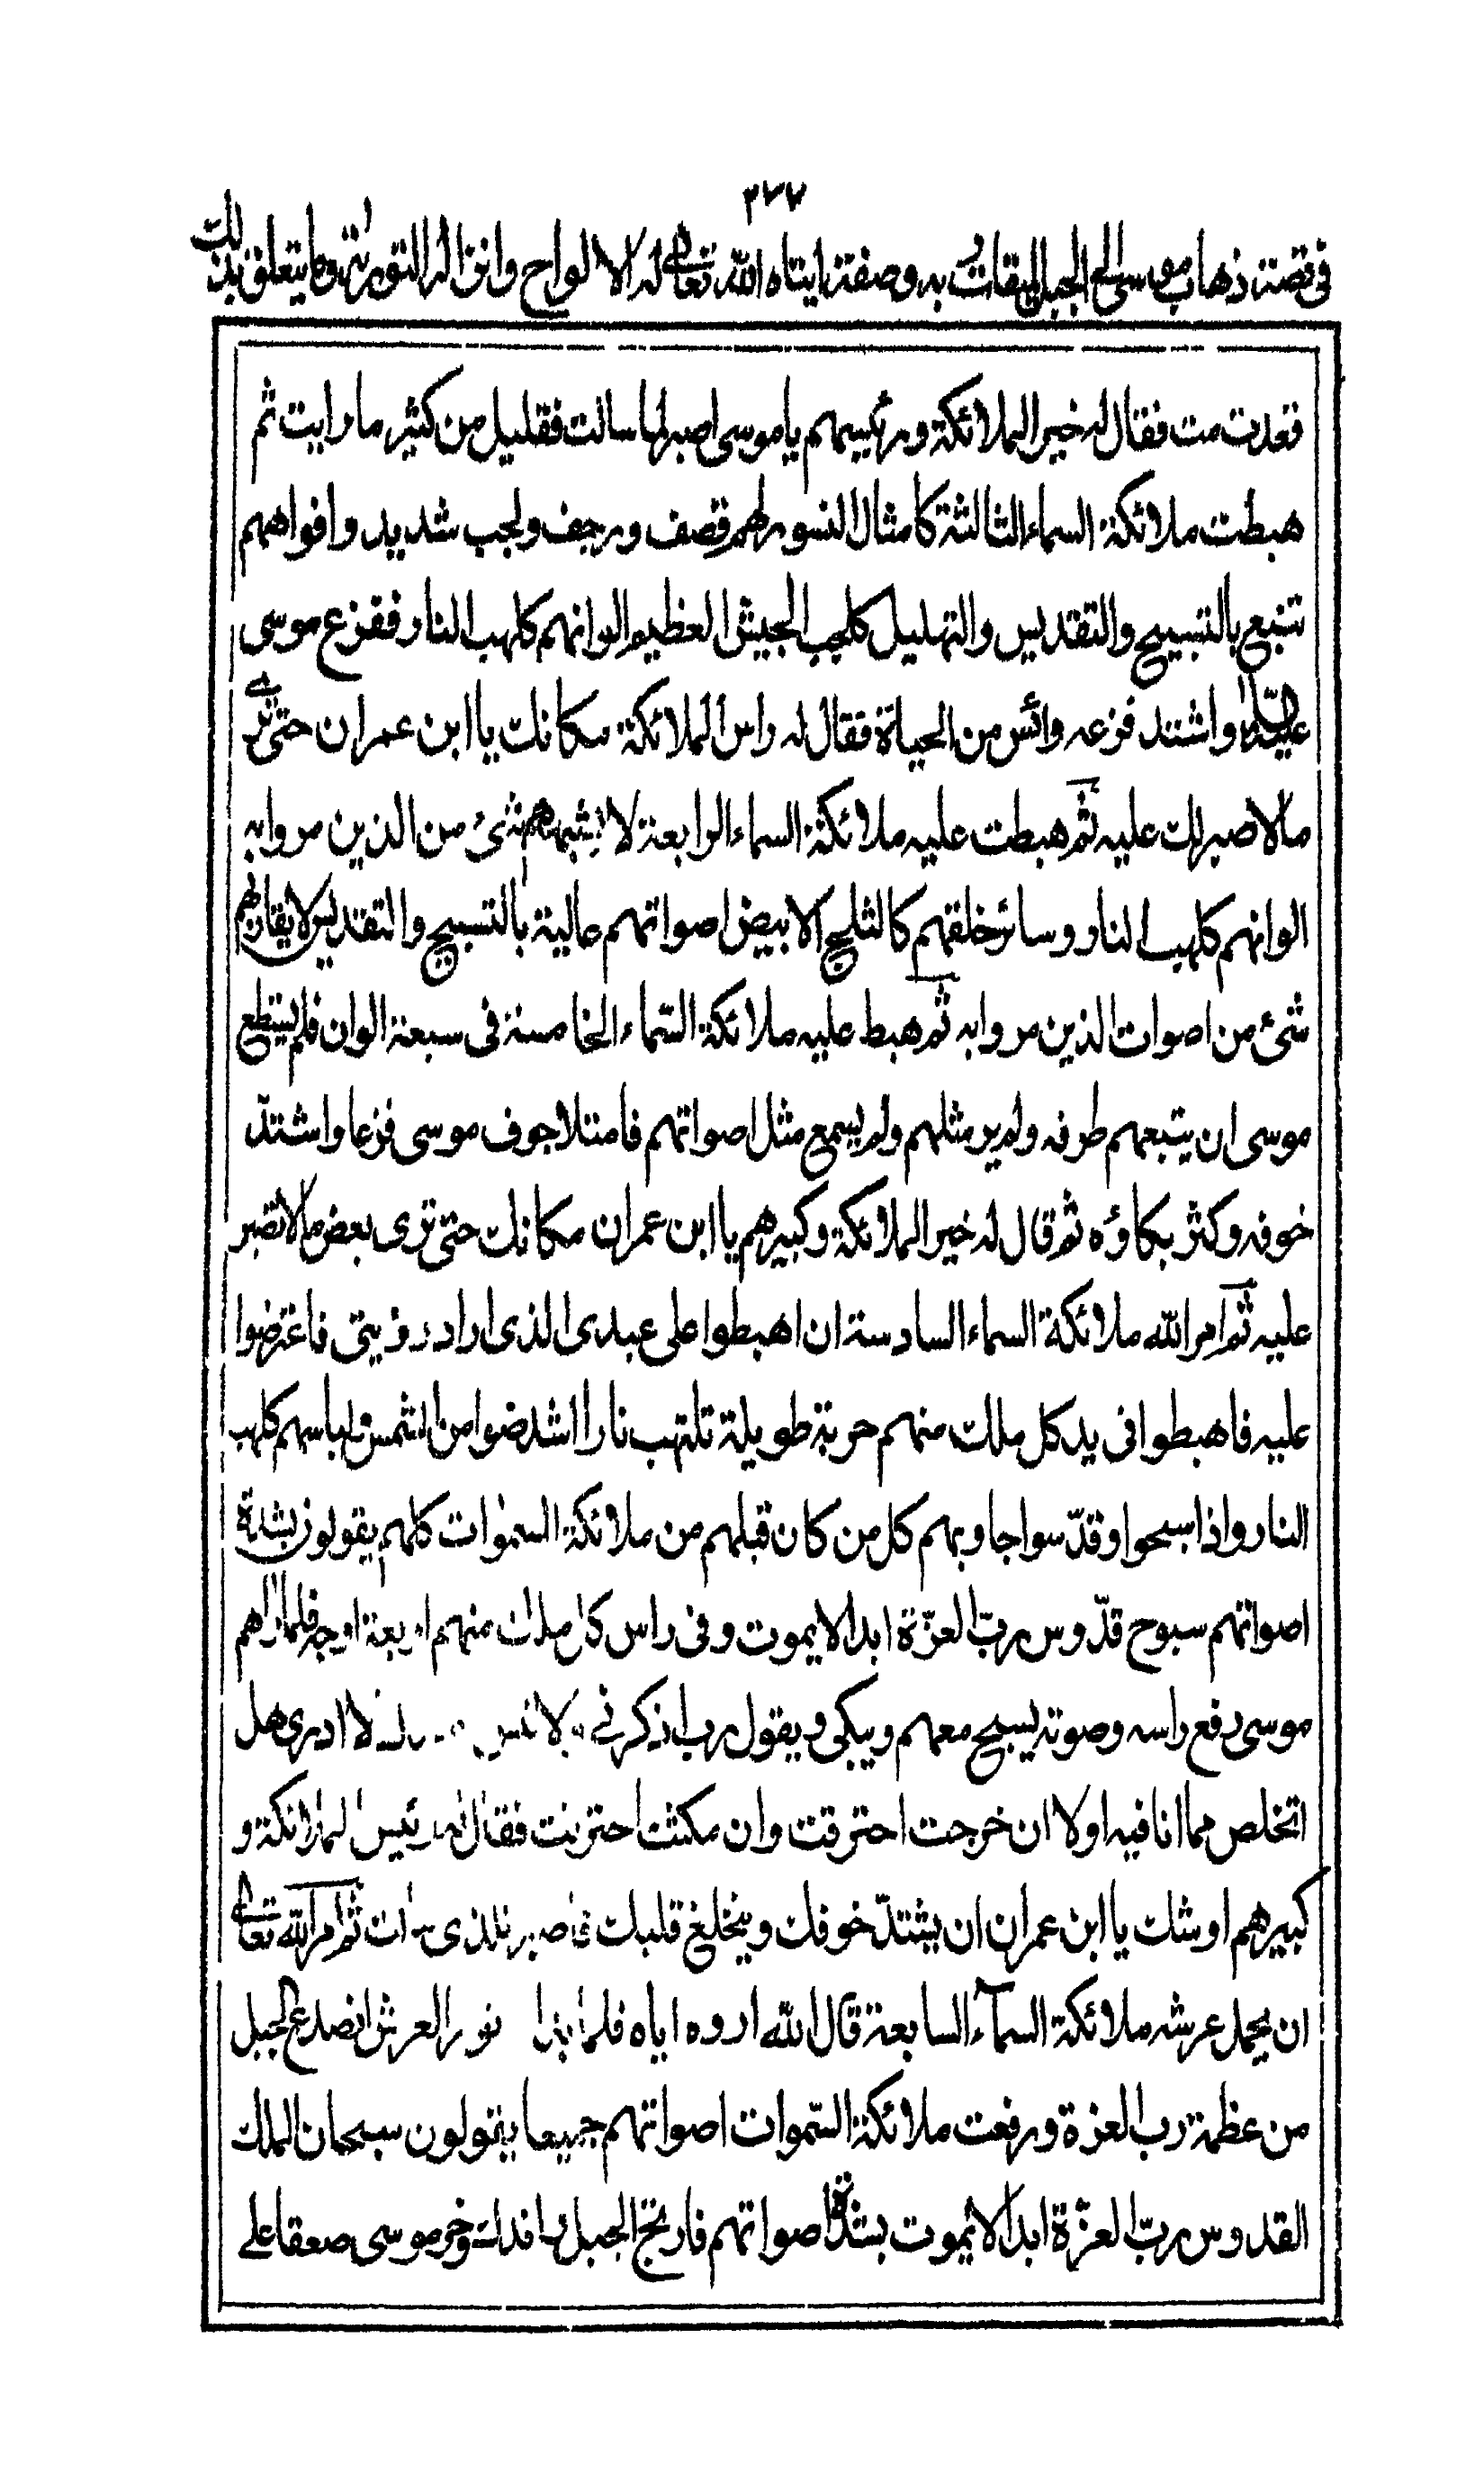 ٣٧٧
فى قصة ذهاب موسى الى الجبل لميقات ربه وصفة ايتاه الله تعالى له الالواح وانزاله التورية وما يتعلق بذلك
قعدت مت فقال له خير الملائكة ورئيسهم يا موسى اصبر لما سالت فقليل من كثير ما رايت ثم
هبطت ملائكة السماء الثالثة كامثال النسور لهم قصف ورجف ولجب شديد وافواههم
تنبع بالتسبيح والتقديس والتهليل كلجب الجيش العظيم الوانهم كلهب النار ففزع موسى
عليه السلام واشتد فزعه وائس من الحياة فقال له راس الملائكة مكانك يا ابن عمران حتى ترى
مالا صبر لك عليه ثم هبطت عليه ملائكة السماء الرابعة لا يشبههم شئ من الذين مروا به
الوانهم كلهب النار وسائر خلقهم كالثلج الابيض اصواتهم عالية بالتسبيح والتقديس لا يقاربهم
شئ من اصوات الذين مروا به ثم هبط عليه ملائكة السماء الخامسة فى سبعة الوان فلم يستطع
موسى ان يتبعهم طرفه ولم ير مثلهم ولم يسمع مثل اصواتهم فامتلا جوف موسى فزعا واشتدّ
خوفه وكثر بكاؤه ثم قال له خير الملائكة وكبيرهم يا ابن عمران مكانك حتى ترى بعض مالا تصبر
عليه ثم امر الله ملائكة السماء السادسة ان اهبطوا على عبدى الذى اراد رؤيتى فاعترضوا
عليه فاهبطوا فى يد كل ملك منهم حربة طويلة تلتهب نارا اشد ضوا من الشمس ولباسهم كلهب
النار واذا سبحوا وقدّسوا جاوبهم كل من كان قبلهم من ملائكة السموات كلهم يقولون بشدة
اصواتهم سبوح قدّوس ربّ العزّة ابدا لا يموت وفى راس كل ملك منهم اربعة اوجه فلما راهم
موسى رفع راسه وصوته يسبح معهم ويبكى ويقول رب اذكرنى ولا تنس لا ادرى هل
اتخلص مما انا فيه او لا ان خرجت احترقت وان مكثت احترقت فقال له رئيس الملائكة و
كبيرهم اوشك يا ابن عمران ان يشتدّ خوفك وينخلع قلبك فاصبر للذى سالت ثم امر الله تعالى
ان يحمل عرشه ملائكة السمآء السابعة قال الله اروه اياه فلما بدا نور العرش انصدع الجبل
من عظمة رب العزة ورفعت ملائكة السّموات اصواتهم جميعا يقولون سبحان الملك
القدوس ربّ العزّة ابدا لا يموت بشدّة اصواتهم فارتج الجبل واندك وخر موسى صعقا على